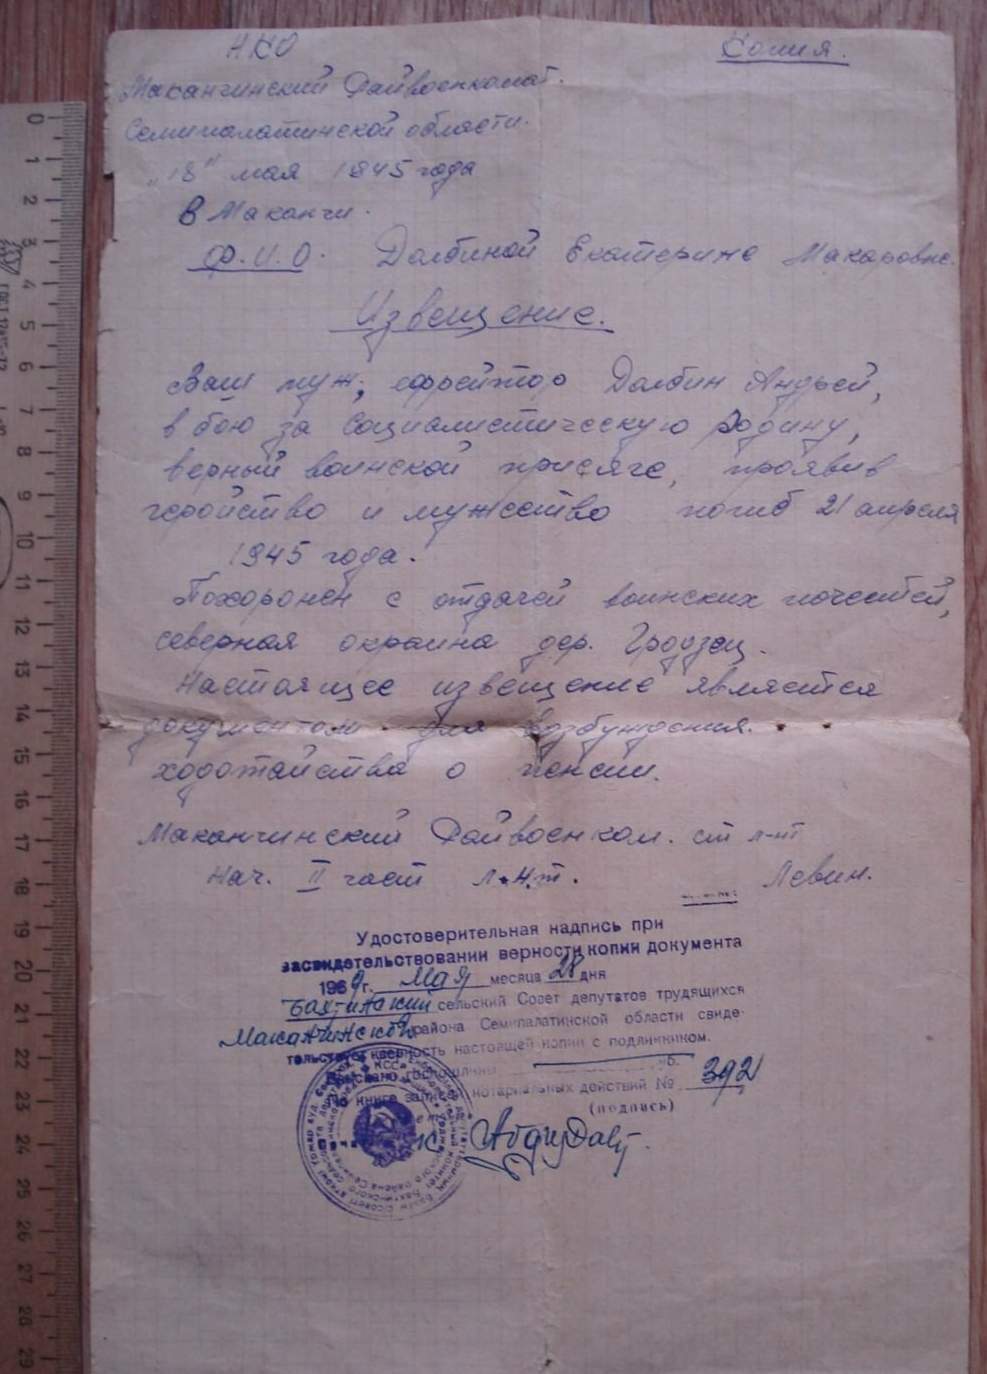 НКО Копия.
Маканчинский Райвоенкомат.
Семипалатинской области.
"18" мая 1945 года
в Маканчи.
Ф.И.О. Долбиной Екатерине Макаровне.
Извещение.
Ваш муж, ефрейтор Долбин Андрей,
в бою за социалистическую родину,
верный воинской присяге, проявив
геройство и мужество погиб 21 апреля
1945 года.
Похоронен с отдачей воинских почестей,
северная окраина дер. Гродзец.
Настоящее извещение является
документом для возбуждения.
ходотайства о пенсии.
Маканчинский Райвоенком. ст л-нт
Нач. II част л-н.т. Левин.
Удостоверительная надпись при
засвидетельствовании верности копии документа
1969г. Мая месяца 28 дня
Бахтинский сельский Совет депутатов трудящихся
Маканчинского района Семипалатинской области свиде-
тельствует верность настоящей копии с подлинником.
Взыскано госпошлины
По книге записей нотариальных действий № 392
(подпись)
0
1
2
3
4
5
6
7
8
9
10
11
12
13
14
15
16
17
18
19
20
21
22
23
24
25
26
27
28
29